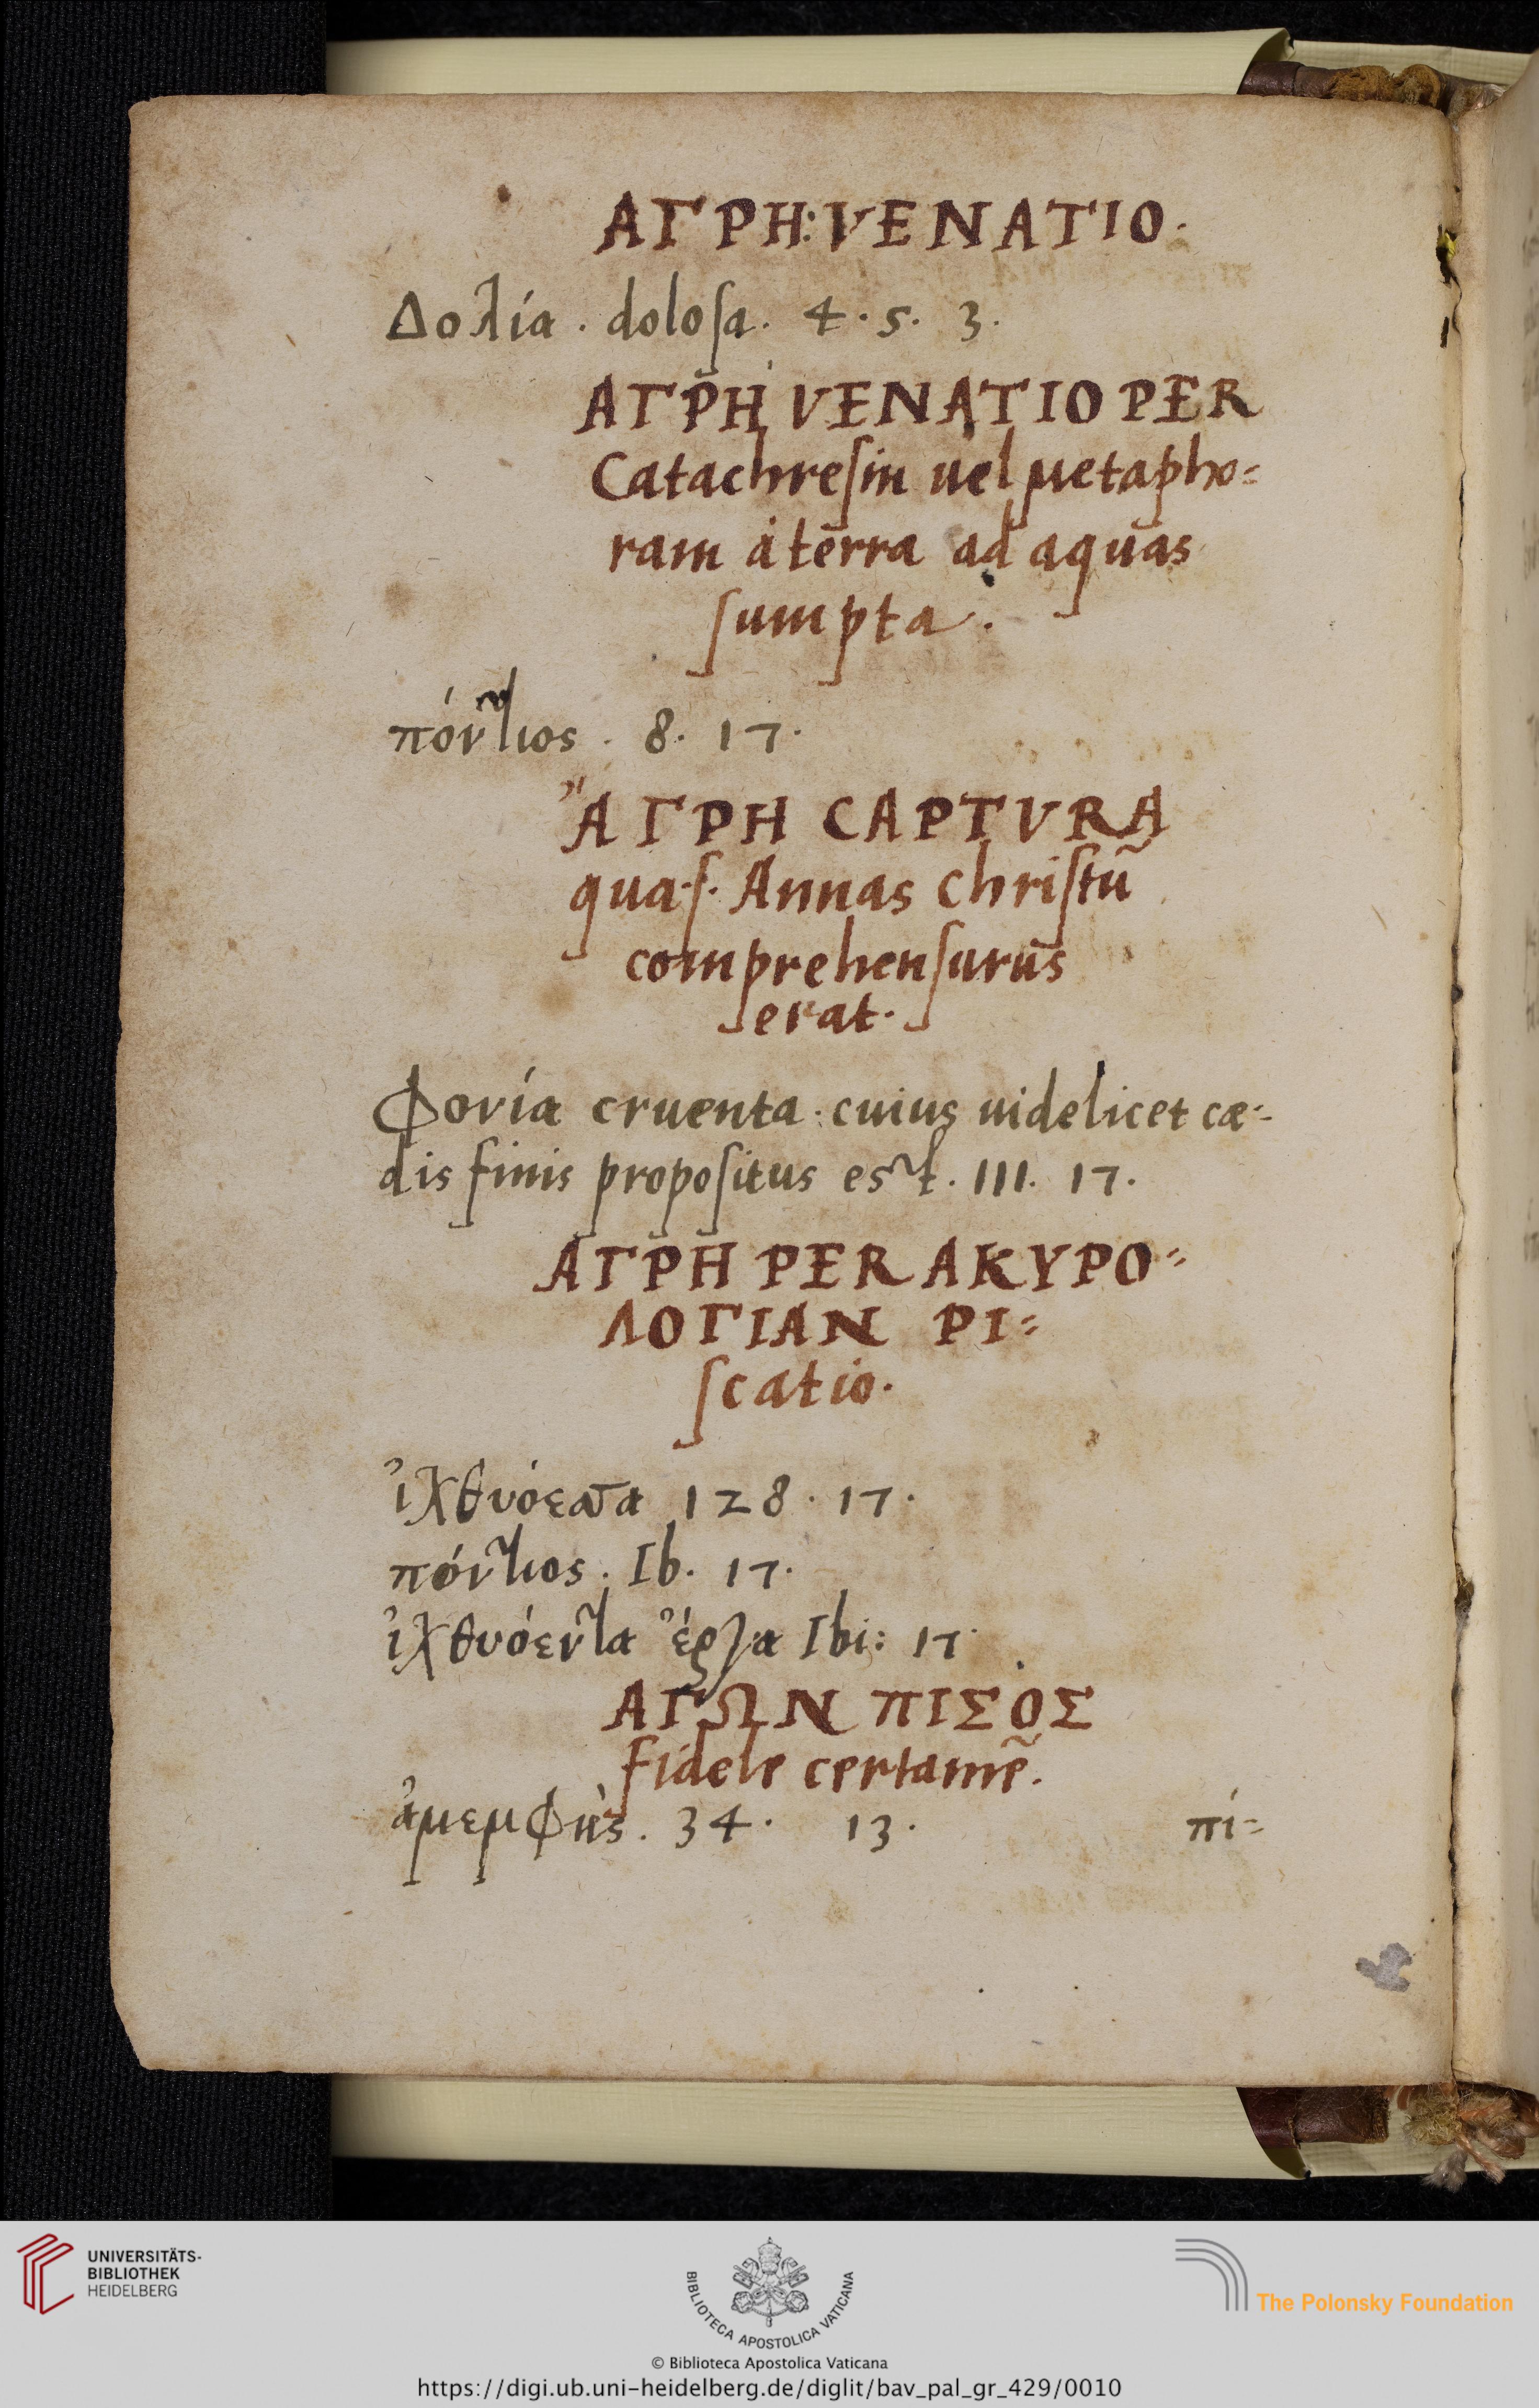 ΑΓΡΗ: VENATIO.
Δολία . dolosa. 4. 5. 3.
ΑΓΡΗ VENATIO PER
Catachresin uel metapho=
ram à terra ad aquas
sumpta.
πόντιος . 8. 17.
ἌΓΡΗ CAPTVRA
qua .s. Annas Christũ
comprehensurus
erat.
Φονία cruenta . cuius uidelicet cæ-
dis finis propositus est. III. 17.
ΑΓΡΗ PER ΑΚΥΡΟ=
ΛΟΓΙΑΝ PI=
scatio.
ἰχθυόεσσα 128. 17.
πόντιος . Ib. 17.
ἰχθυόεντα ἔργα Ibi: 17.
ΑΓΩΝ ΠΙΣΟΣ
Fidele certamẽ.
ἀμεμφὴς . 34. 13. πί=
UNIVERSITÄTS-
BIBLIOTHEK
HEIDELBERG
BIBLIOTECA APOSTOLICA VATICANA
The Polonsky Foundation
© Biblioteca Apostolica Vaticana
https://digi.ub.uni-heidelberg.de/diglit/bav_pal_gr_429/0010